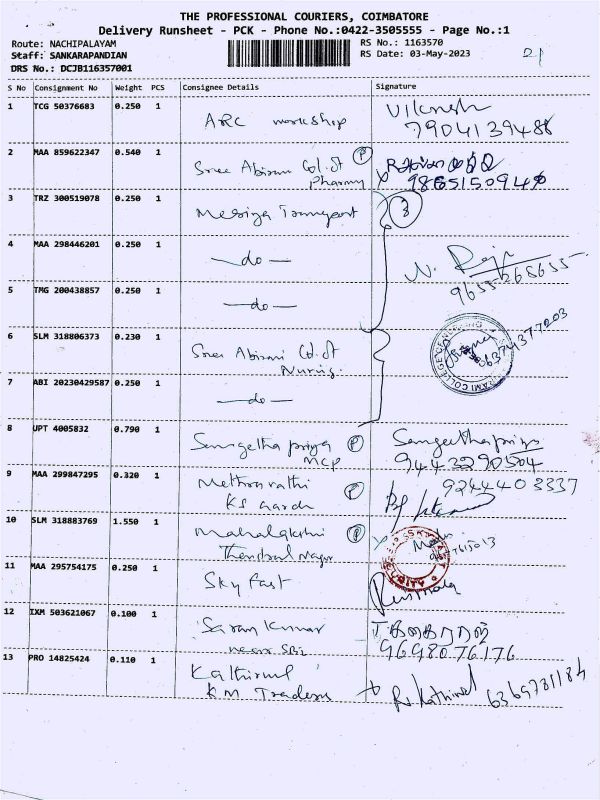 THE PROFESSIONAL COURIERS, COIMBATORE
Delivery Runsheet - PCK - Phone No.:0422-3505555 - Page No.:1
Route: NACHIPALAYAM
RS No.: 1163570
Staff: SANKARAPANDIAN
RS Date: 03-May-2023
21
DRS No.: DCJB116357001
S No Consignment No Weight PCS Consignee Details Signature
1 TCG 50376683 0.250 1 ARC workship Viknesh
7904139488
2 MAA 859622347 0.540 1 Sree Abirami Col. of P
Pharmy 9865150940
3 TRZ 300519078 0.250 1 Transport 3
4 MAA 298446201 0.250 1 —do— N. Raja
9655
5 TMG 200438857 0.250 1 —do—
6 SLM 318806373 0.230 1 Sree Abirami Col. of
Nursing.
COLLEGE OF NURSING
7 ABI 20230429587 0.250 1 —do—
8 UPT 4005832 0.790 1 Sangetha priya P Sangeethapriya
MCP 9443290504
9 MAA 299847295 0.320 1 P 9244403337
KS
10 SLM 318883769 1.550 1 Mahalakshi P
Nagar
11 MAA 295754175 0.250 1 Sky Fast
12 IXM 503621067 0.100 1 Saran Kumar
near SBI 9698076176
13 PRO 14825424 0.110 1 Kathirvel
KM Traders R. Kathirvel 6369731184